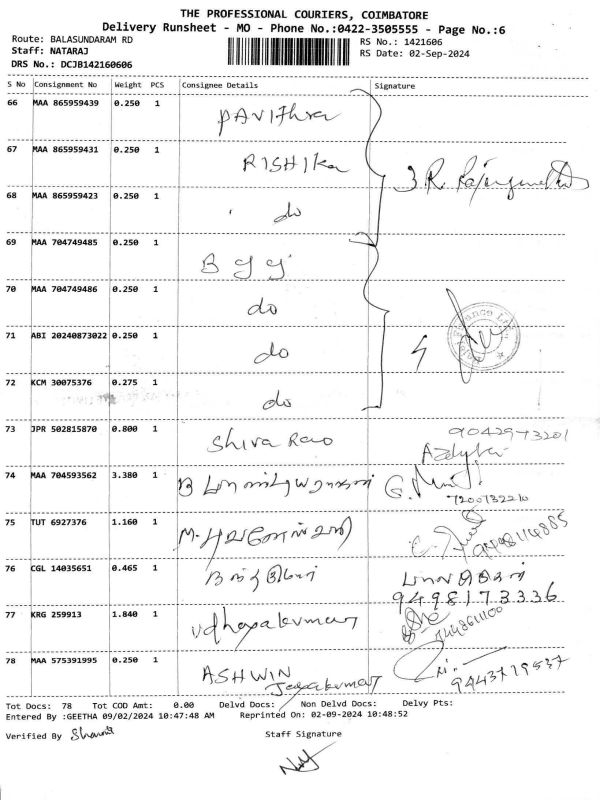 THE PROFESSIONAL COURIERS, COIMBATORE
Delivery Runsheet - MO - Phone No.:0422-3505555 - Page No.:6
Route: BALASUNDARAM RD RS No.: 1421606
Staff: NATARAJ RS Date: 02-Sep-2024
DRS No.: DCJB142160606
S No Consignment No Weight PCS Consignee Details Signature
66 MAA 865959439 0.250 1 PAVIthra
67 MAA 865959431 0.250 1 RISHIka
68 MAA 865959423 0.250 1 do
69 MAA 704749485 0.250 1
70 MAA 704749486 0.250 1 do
71 ABI 20240873022 0.250 1 do
72 KCM 30075376 0.275 1 do
73 JPR 502815870 0.800 1 Shiva Rao
74 MAA 704593562 3.380 1 B G.
7200732210
75 TUT 6927376 1.160 1 M.
76 CGL 14035651 0.465 1
9498173336
77 KRG 259913 1.840 1 Udhayakumar
78 MAA 575391995 0.250 1 ASHWIN
Jayakumar 9443719537
Tot Docs: 78 Tot COD Amt: 0.00 Delvd Docs: Non Delvd Docs: Delvy Pts:
Entered By :GEETHA 09/02/2024 10:47:48 AM Reprinted On: 02-09-2024 10:48:52
Verified By Staff Signature